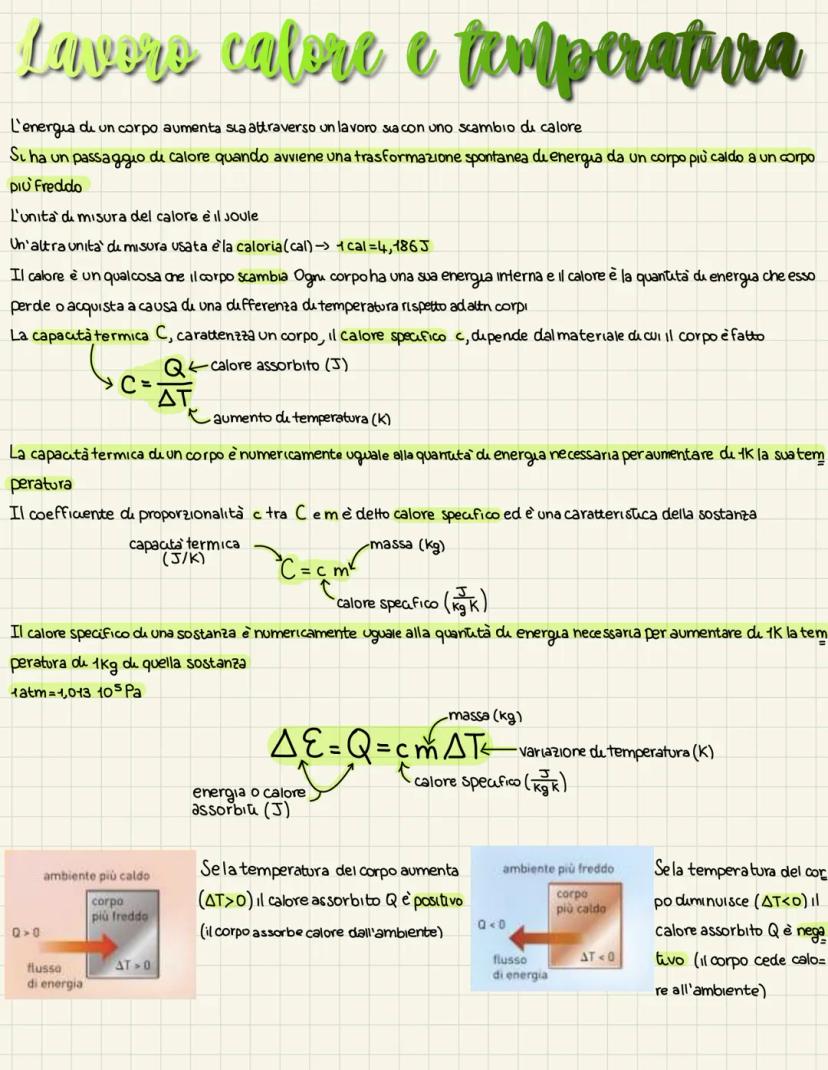 Lavoro calore e temperatura
L'energia di un corpo aumenta sia attraverso un lavoro sia con uno scambio di calore
Si ha un passaggio di calore quando avviene una trasformazione spontanea di energia da un corpo più caldo a un corpo
più freddo
L'unità di misura del calore è il Joule
Un'altra unità di misura usata è la caloria (cal) → 1 cal = 4,186 J
Il calore è un qualcosa che il corpo scambia Ogni corpo ha una sua energia interna e il calore è la quantità di energia che esso
perde o acquista a causa di una differenza di temperatura rispetto ad altri corpi
La capacità termica C, caratterizza un corpo, il calore specifico c, dipende dal materiale di cui il corpo è fatto
C = Q/ΔT
calore assorbito (J)
aumento di temperatura (K)
La capacità termica di un corpo è numericamente uguale alla quantità di energia necessaria per aumentare di 1K la sua tem=
peratura
Il coefficiente di proporzionalità c tra C e m è detto calore specifico ed è una caratteristica della sostanza
capacità termica (J/K)
massa (kg)
C = c m
calore specifico (J/kg K)
Il calore specifico di una sostanza è numericamente uguale alla quantità di energia necessaria per aumentare di 1K la tem=
peratura di 1Kg di quella sostanza
1 atm = 1,013 10⁵ Pa
massa (kg)
ΔE = Q = c m ΔT
variazione di temperatura (K)
calore specifico (J/kg K)
energia o calore
assorbiti (J)
ambiente più caldo
corpo
più freddo
Q > 0
ΔT > 0
flusso
di energia
Se la temperatura del corpo aumenta
(ΔT>0) il calore assorbito Q è positivo
(il corpo assorbe calore dall'ambiente)
ambiente più freddo
corpo
più caldo
Q < 0
ΔT < 0
flusso
di energia
Se la temperatura del cor=
po diminuisce (ΔT<0) il
calore assorbito Q è nega=
tivo (il corpo cede calo=
re all'ambiente)